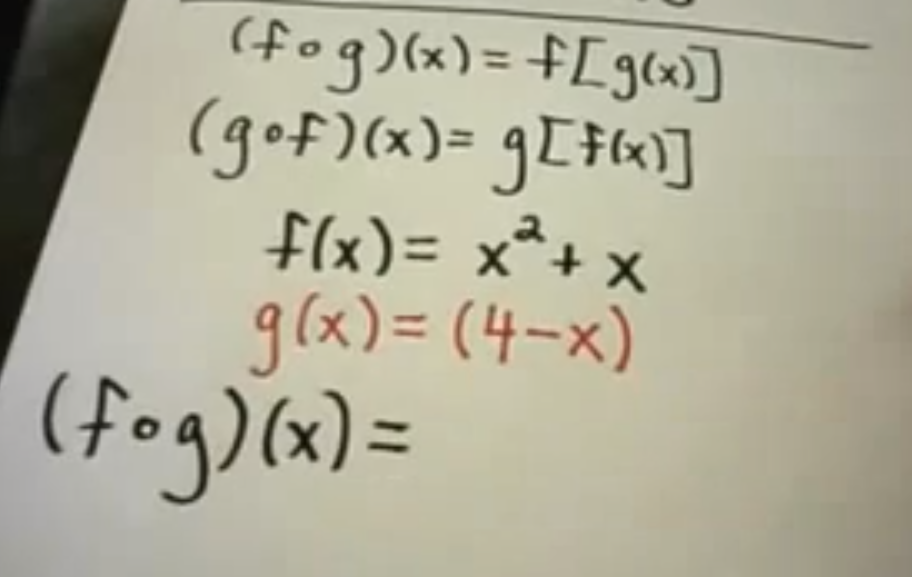 (f∘g)(x) = f[g(x)]
(g∘f)(x) = g[f(x)]
f(x) = x² + x
g(x) = (4-x)
(f∘g)(x) =